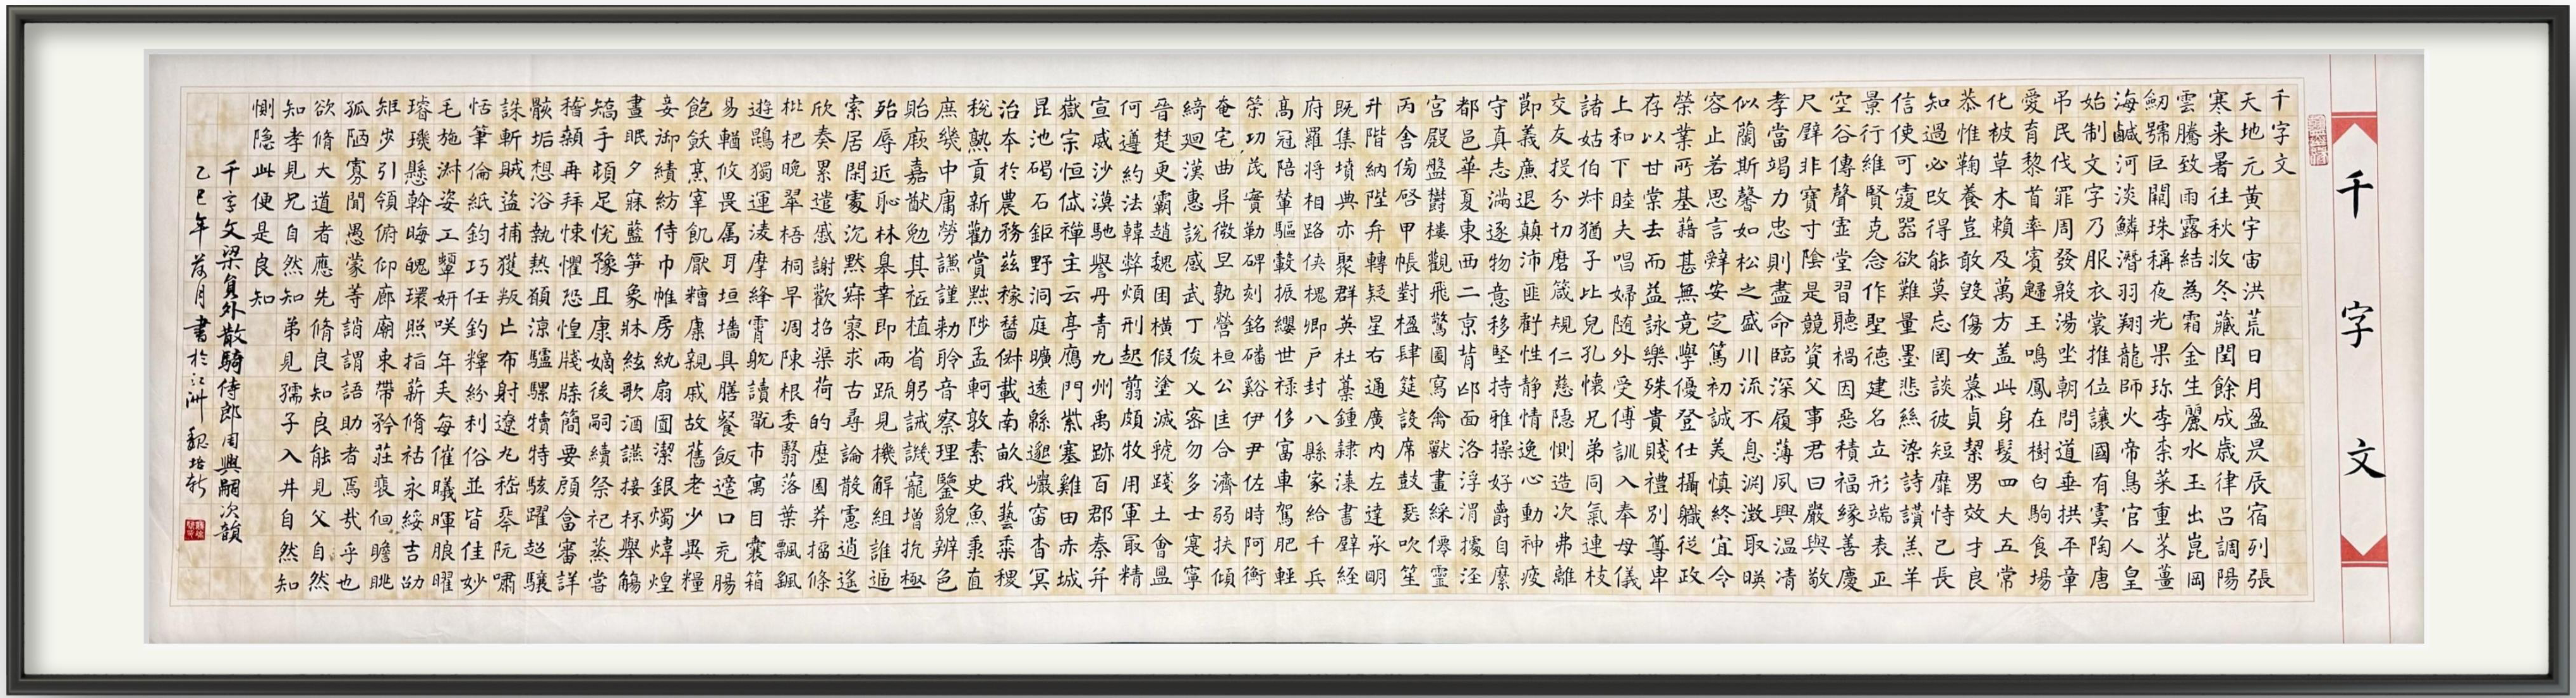 千字文
千字文
天地元黃宇宙洪荒日月盈昃辰宿列張
寒来暑往秋收冬藏閏餘成歲律呂調陽
雲騰致雨露結為霜金生麗水玉出崑岡
劒號巨闕珠稱夜光果珍李柰菜重芥薑
海鹹河淡鱗潛羽翔龍師火帝鳥官人皇
始制文字乃服衣裳推位讓國有虞陶唐
吊民伐罪周發殷湯坐朝問道垂拱平章
愛育黎首率賓歸王鳴鳳在樹白駒食場
化被草木賴及萬方盖此身髮四大五常
恭惟鞠養豈敢毀傷女慕貞絜男效才良
知過必改得能莫忘罔談彼短靡恃己長
信使可覆器欲難量墨悲絲染詩讚羔羊
景行維賢克念作聖德建名立形端表正
空谷傳聲虛堂習聽禍因惡積福緣善慶
尺璧非寶寸陰是競資父事君曰嚴與敬
孝當竭力忠則盡命臨深履薄夙興温凊
似蘭斯馨如松之盛川流不息淵澂取暎
容止若思言辭安定篤初誠美慎終宜令
榮業所基藉甚無竟學優登仕攝職從政
存以甘棠去而益詠樂殊貴賤禮別尊卑
上和下睦夫唱婦随外受傅訓入奉母儀
諸姑伯叔猶子比兒孔懷兄弟同氣連枝
交友投分切磨箴規仁慈隐惻造次弗離
節義廉退顛沛匪虧性静情逸心動神疲
守真志滿逐物意移堅持雅操好爵自縻
都邑華夏東西二京背邙面洛浮渭據涇
宮殿盤鬱樓觀飛驚圖寫禽獸畫綵僊靈
丙舍傍啓甲帳對楹肆筵設席鼓瑟吹笙
升階納陛弁轉疑星右通廣内左達承明
既集墳典亦聚群英杜稾鍾隸漆書壁經
府羅将相路俠槐卿户封八縣家給千兵
高冠陪輦驅轂振纓世禄侈富車駕肥輕
策功茂實勒碑刻銘磻谿伊尹佐時阿衡
奄宅曲阜微旦孰營桓公匡合濟弱扶傾
綺迴漢惠說感武丁俊乂密勿多士寔寧
晉楚更霸趙魏困橫假塗滅虢踐土會盟
何遵約法韓弊煩刑起翦頗牧用軍最精
宣威沙漠馳譽丹青九州禹跡百郡秦并
嶽宗恒岱禪主云亭鴈門紫塞雞田赤城
昆池碣石鉅野洞庭曠遠緜邈巖岫杳冥
治本於農務茲稼穡俶載南畝我藝黍稷
稅熟貢新勸賞黜陟孟軻敦素史魚秉直
庶幾中庸勞謙謹勅聆音察理鑒貌辨色
貽厥嘉猷勉其祗植省躬誡譏寵增抗極
殆辱近恥林皋幸即兩疏見機解組誰逼
索居閑處沉默寂寥求古尋論散慮逍遙
欣奏累遣慼謝歡招渠荷的歷園莽抽條
枇杷晚翠梧桐早凋陳根委翳落葉飄颻
遊鵾獨運淩摩絳霄耽讀翫市寓目囊箱
易輶攸畏属耳垣墻具膳餐飯適口充腸
飽飫烹宰飢厭糟糠親戚故舊老少異糧
妾御績紡侍巾帷房紈扇圓潔銀燭煒煌
晝眠夕寐藍笋象牀絃歌酒讌接杯舉觴
矯手頓足悅豫且康嫡後嗣續祭祀蒸嘗
稽顙再拜悚懼恐惶牋牒簡要顧答審詳
骸垢想浴執熱願涼驢騾犢特駭躍超驤
誅斬賊盗捕獲叛亡布射遼丸嵇琴阮嘯
恬筆倫紙鈞巧任釣釋紛利俗並皆佳妙
毛施淑姿工顰妍咲年矢每催曦暉朗曜
璿璣懸斡晦魄環照指薪脩祜永綏吉劭
矩步引領俯仰廊廟束帶矜莊裴佪瞻眺
孤陋寡聞愚蒙等誚謂語助者焉哉乎也
欲脩大道者應先脩良知良能見父自然
知孝見兄自然知弟見孺子入井自然知
惻隐此便是良知
千字文梁負外散騎侍郎周興嗣次韻
乙巳年荷月書於江洲魏培新